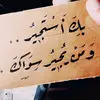 بِكَ أَسْتَجِيرُ ..
وَمَنْ يُجِيرُ سِوَاكَ ..